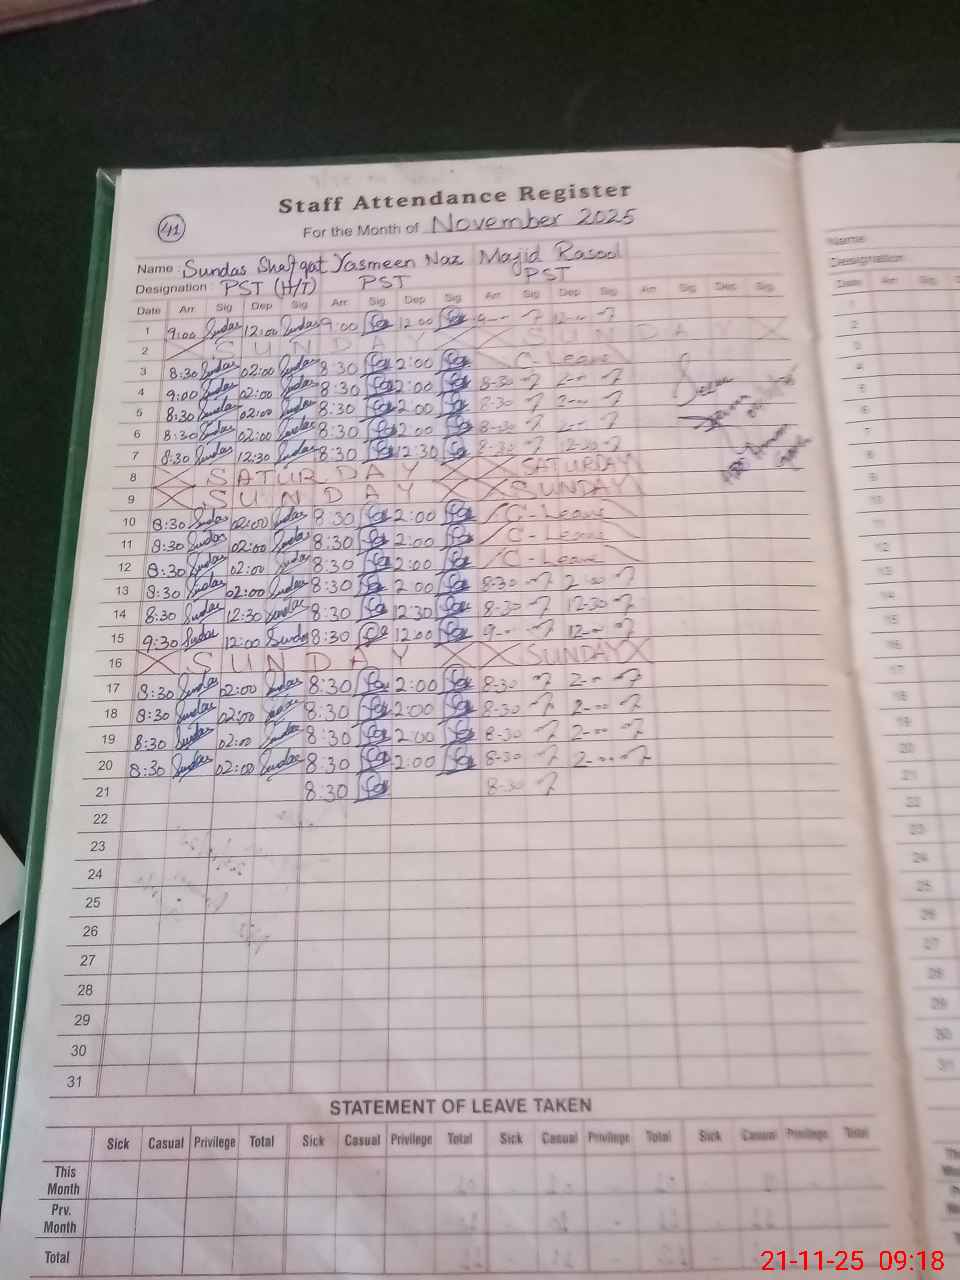 Staff Attendance Register
41
For the Month of November 2025
Name Sundas Shafqat Yasmeen Naz Majid Rasool
Designation PST (H/T) PST PST
Date Arr Sig Dep Sig Arr Sig Dep Sig Arr Sig Dep Sig Arr Sig Dep Sig
1 9:00 Sundas 12:00 Sundas 9:00 12:00 9-- 12--
2 SUNDAY SUNDAY
3 8:30 Sundas 02:00 Sundas 8:30 2:00 C-Leave
4 9:00 Sundas 02:00 Sundas 8:30 2:00 8-30 2--
5 8:30 Sundas 02:00 Sundas 8:30 2:00 8-30 2--
6 8:30 Sundas 02:00 Sundas 8:30 2:00 8-30 2--
7 8:30 Sundas 12:30 Sundas 8:30 12:30 8-30 12-30
8 SATURDAY SATURDAY
9 SUNDAY SUNDAY
10 8:30 Sundas 02:00 Sundas 8:30 2:00 C-Leave
11 8:30 Sundas 02:00 Sundas 8:30 2:00 C-Leave
12 8:30 Sundas 02:00 Sundas 8:30 2:00 C-Leave
13 8:30 Sundas 02:00 Sundas 8:30 2:00 8-30 2-00
14 8:30 Sundas 12:30 Sundas 8:30 12:30 8-30 12-30
15 9:30 Sundas 12:00 Sundas 8:30 12:00 9-- 12--
16 SUNDAY SUNDAY
17 8:30 Sundas 02:00 Sundas 8:30 2:00 8-30 2--
18 8:30 Sundas 02:00 Sundas 8:30 2:00 8-30 2--
19 8:30 Sundas 02:00 Sundas 8:30 2:00 8-30 2--
20 8:30 Sundas 02:00 Sundas 8:30 2:00 8-30 2--
21 8:30 8-30
22
23
24
25
26
27
28
29
30
31
STATEMENT OF LEAVE TAKEN
Sick Casual Privilege Total Sick Casual Privilege Total Sick Casual Privilege Total Sick Casual Privilege Total
This Month
Prv. Month
Total
Name
Designation
Date Arr Sig
21-11-25 09:18